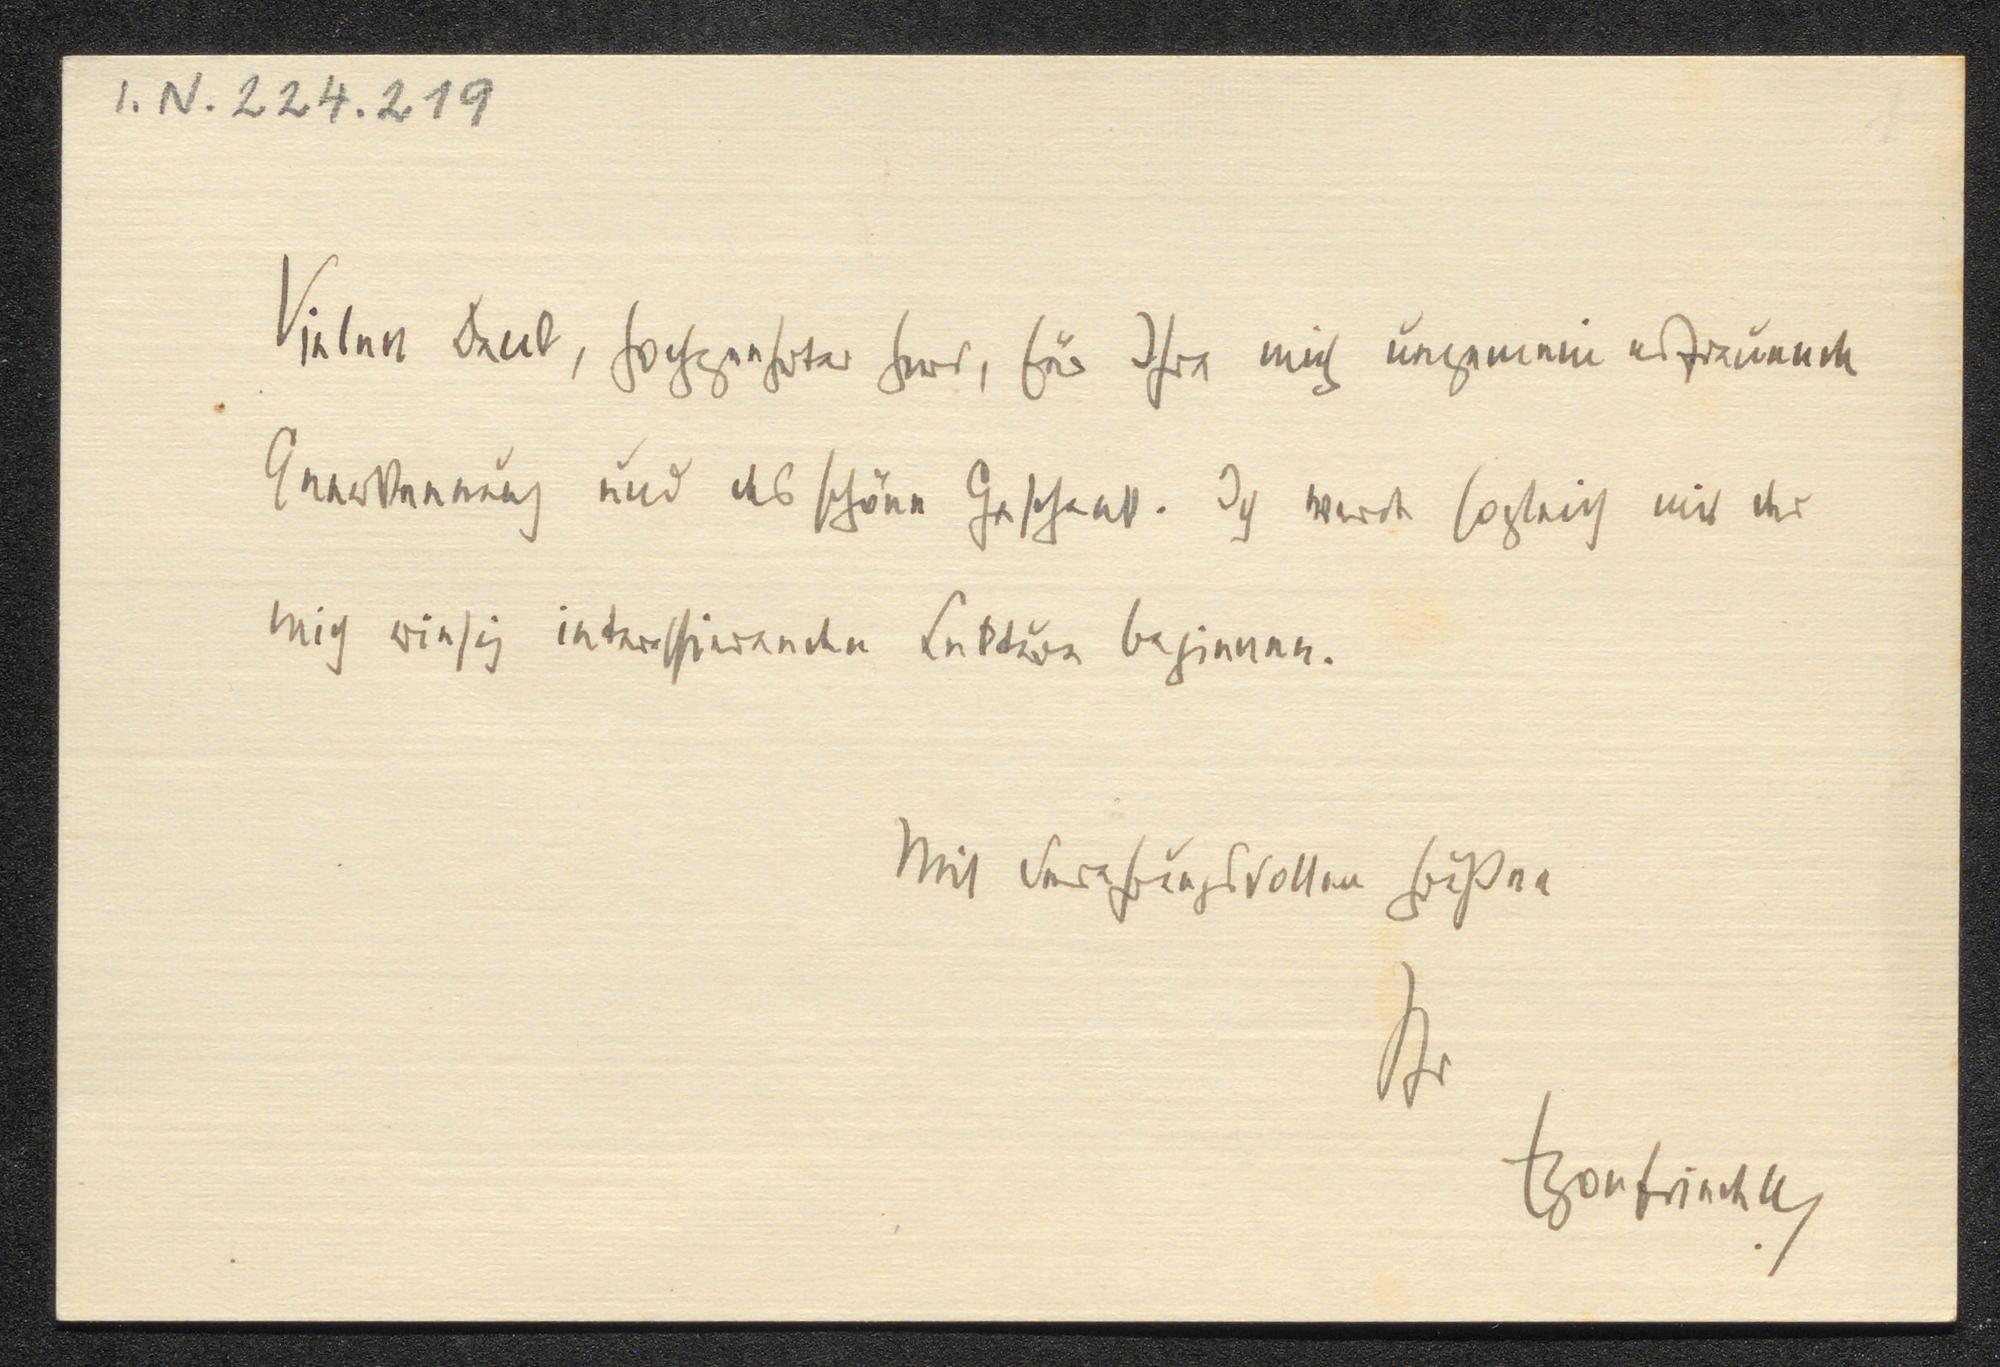 I. N. 224.219
Vielen Dank, hochgeehrter Herr, für Ihre mich ungemein erfreuende
Anerkennung und das schöne Geschenk. Ich werde sogleich mit der
mich riesig interessierenden Lektüre beginnen.
Mit verehrungsvollen Grüßen
Ihr
Egon Friedell